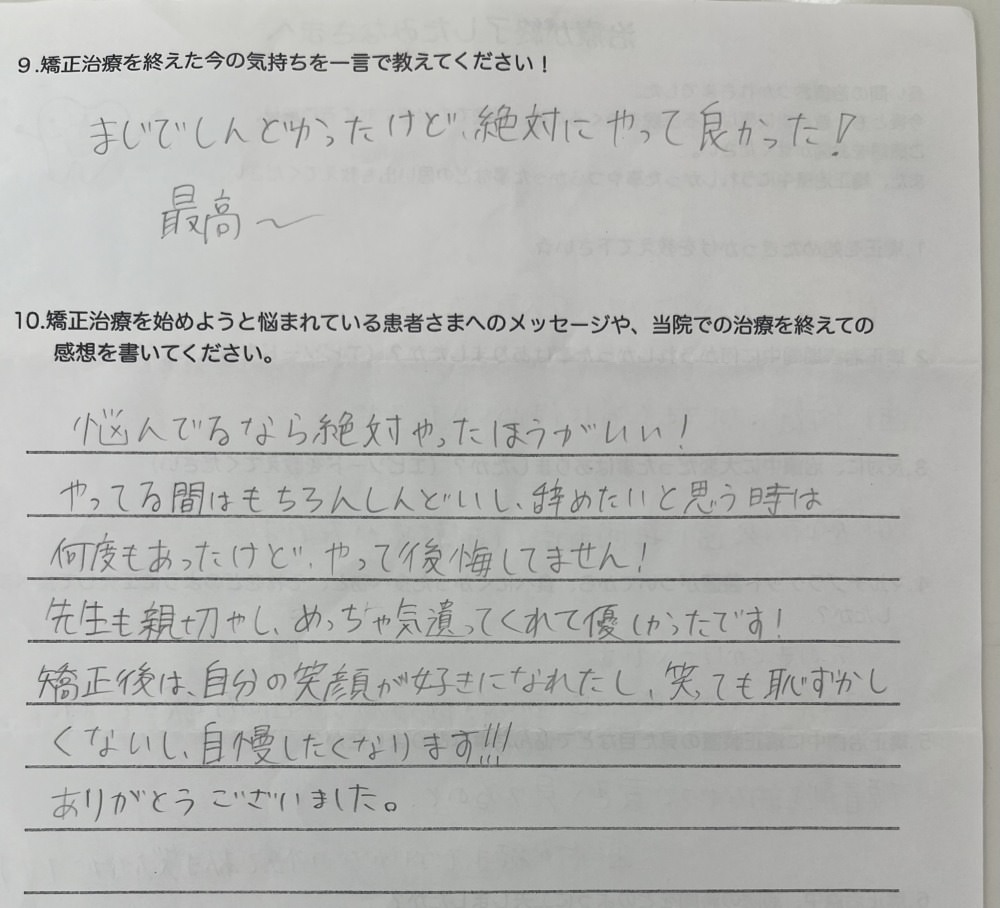 9.矯正治療を終えた今の気持ちを一言で教えてください！
まじでしんどかったけど、絶対にやって良かった！
最高〜
10.矯正治療を始めようと悩まれている患者さまへのメッセージや、当院での治療を終えての
感想を書いてください。
悩んでるなら絶対やったほうがいい！
やってる間はもちろんしんどいし、辞めたいと思う時は
何度もあったけど、やって後悔してません！
先生も親切やし、めっちゃ気遣ってくれて優しかったです！
矯正後は、自分の笑顔が好きになれたし、笑っても恥ずかし
くないし、自慢したくなります!!!
ありがとうございました。